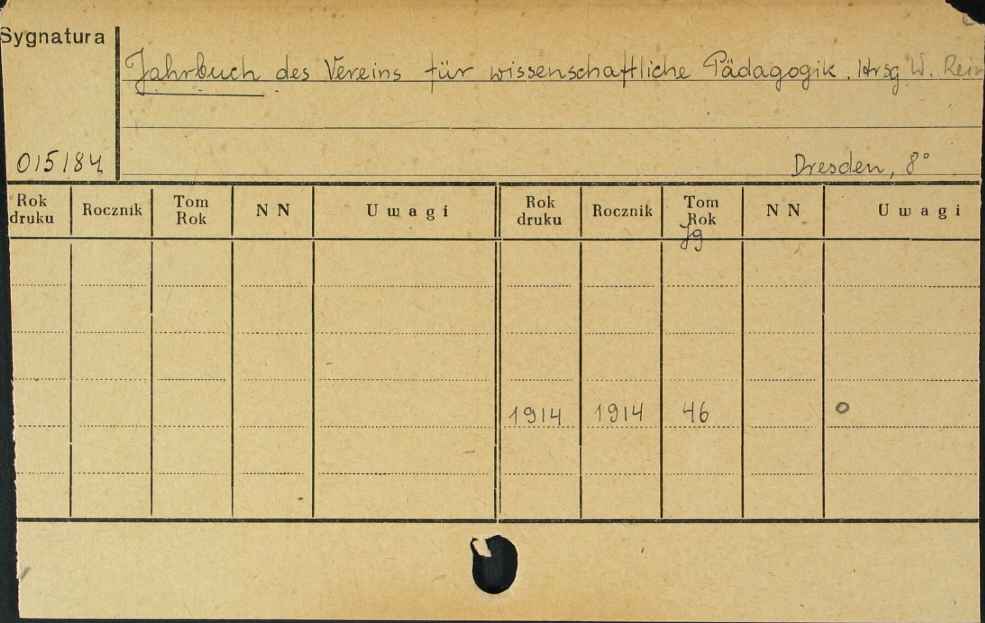 Sygnatura
Jahrbuch des Vereins für wissenschaftliche Pädagogik. Hrsg W. Rein
015184
Dresden, 8°
Rok druku Rocznik Tom Rok N N Uwagi Rok druku Rocznik Tom Rok N N Uwagi
Jg
1914 1914 46 o